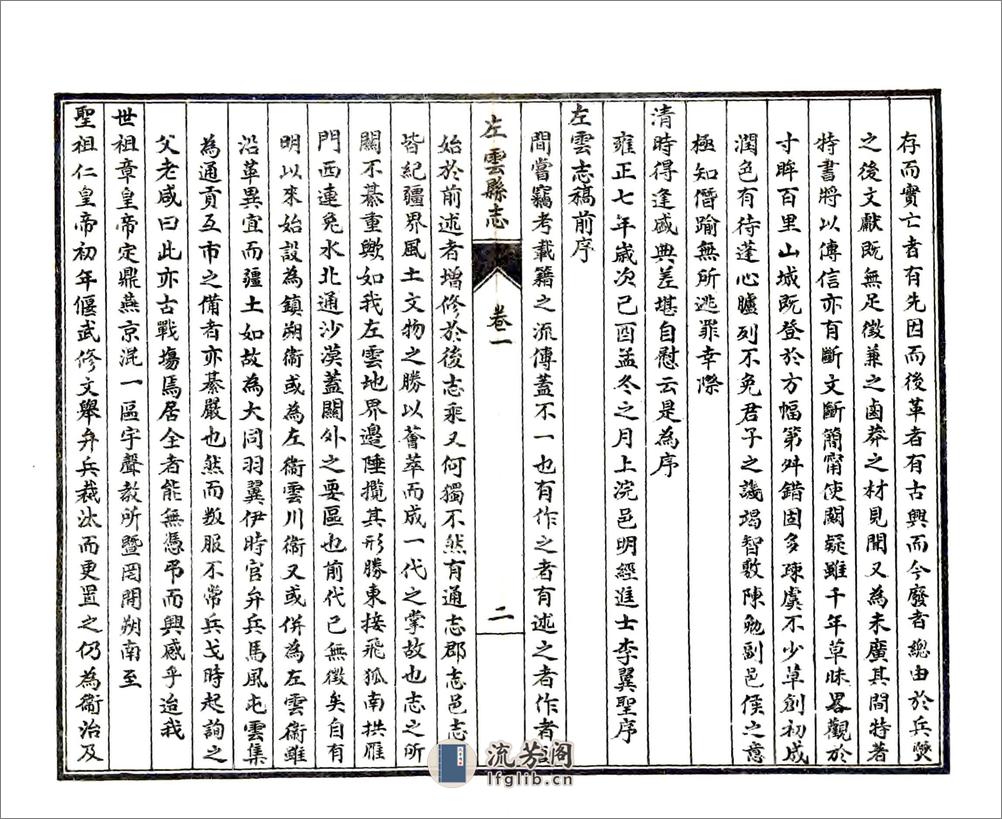 存而實亡者有先因而後革者有古興而今廢者總由於兵燹
之後文獻既無足徵兼之鹵莽之材見聞又為未廣其間特著
特書將以傳信亦有斷文斷簡甯使闕疑雖千年草昧畧觀於
寸眸百里山城既登於方幅第舛錯固多疎虞不少草創初成
潤色有待蓬心臚列不免君子之譏竭智敷陳勉副邑侯之意
極知僭踰無所逃罪幸際
清時得逢盛典差堪自慰云是為序
雍正七年歲次己酉孟冬之月上浣邑明經進士李翼聖序
左雲志稿前序
間嘗竊考載籍之流傳蓋不一也有作之者有述之者作者
左雲縣志
卷一
二
始於前述者增修於後志乘又何獨不然有通志郡志邑志
皆紀疆界風土文物之勝以薈萃而成一代之掌故也志之所
關不綦重歟如我左雲地界邊陲攬其形勝東接飛狐南拱雁
門西連兔水北通沙漠蓋關外之要區也前代已無徵矣自有
明以來始設為鎮朔衞或為左衞雲川衞又或併為左雲衞雖
沿革異宜而疆土如故為大同羽翼伊時官弁兵馬風屯雲集
為通貢互市之備者亦綦嚴也然而叛服不常兵戈時起詢之
父老咸曰此亦古戰塲焉居全者能無憑弔而興感乎迨我
世祖章皇帝定鼎燕京混一區宇聲教所暨罔間朔南至
聖祖仁皇帝初年偃武修文舉弁兵裁汰而更置之仍為衞治及
流芳阁
lfglib.cn